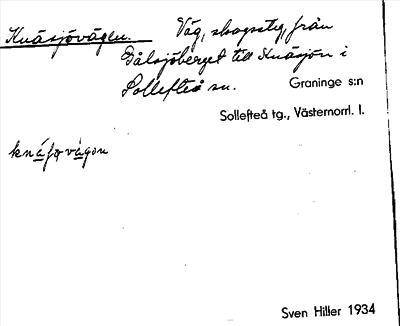 Knäsjövägen. Väg, skogsstig, från
Gålsjöberget till Knäsjön i
Sollefteå sn. Graninge s:n
Sollefteå tg., Västernorrl. l.
Sven Hiller 1934